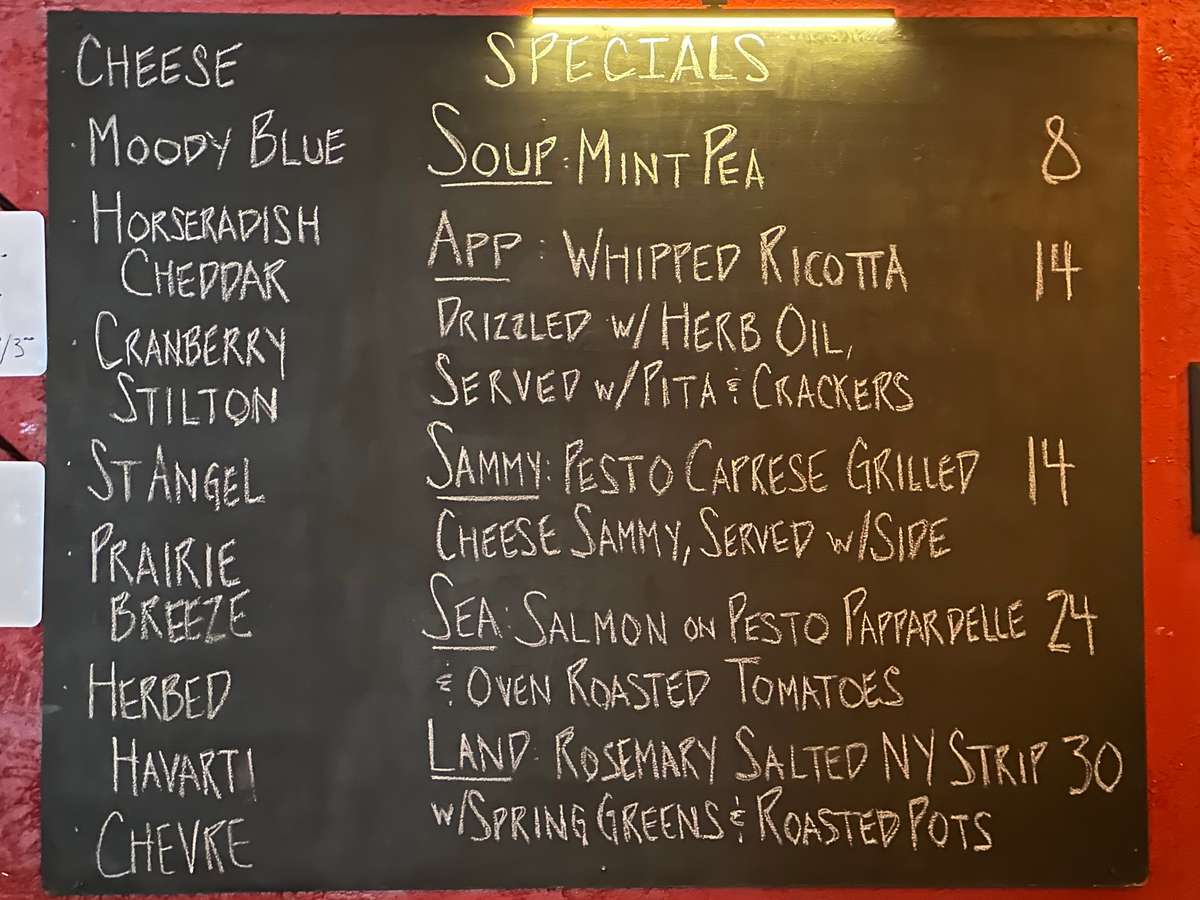 CHEESE
· MOODY BLUE
· HORSERADISH
CHEDDAR
· CRANBERRY
STILTON
· ST ANGEL
· PRAIRIE
BREEZE
· HERBED
HAVARTI
· CHEVRE
SPECIALS
SOUP: MINT PEA 8
APP: WHIPPED RICOTTA 14
DRIZZLED W/ HERB OIL,
SERVED W/ PITA & CRACKERS
SAMMY: PESTO CAPRESE GRILLED 14
CHEESE SAMMY, SERVED W/ SIDE
SEA: SALMON ON PESTO PAPPARDELLE 24
& OVEN ROASTED TOMATOES
LAND: ROSEMARY SALTED NY STRIP 30
W/ SPRING GREENS & ROASTED POTS